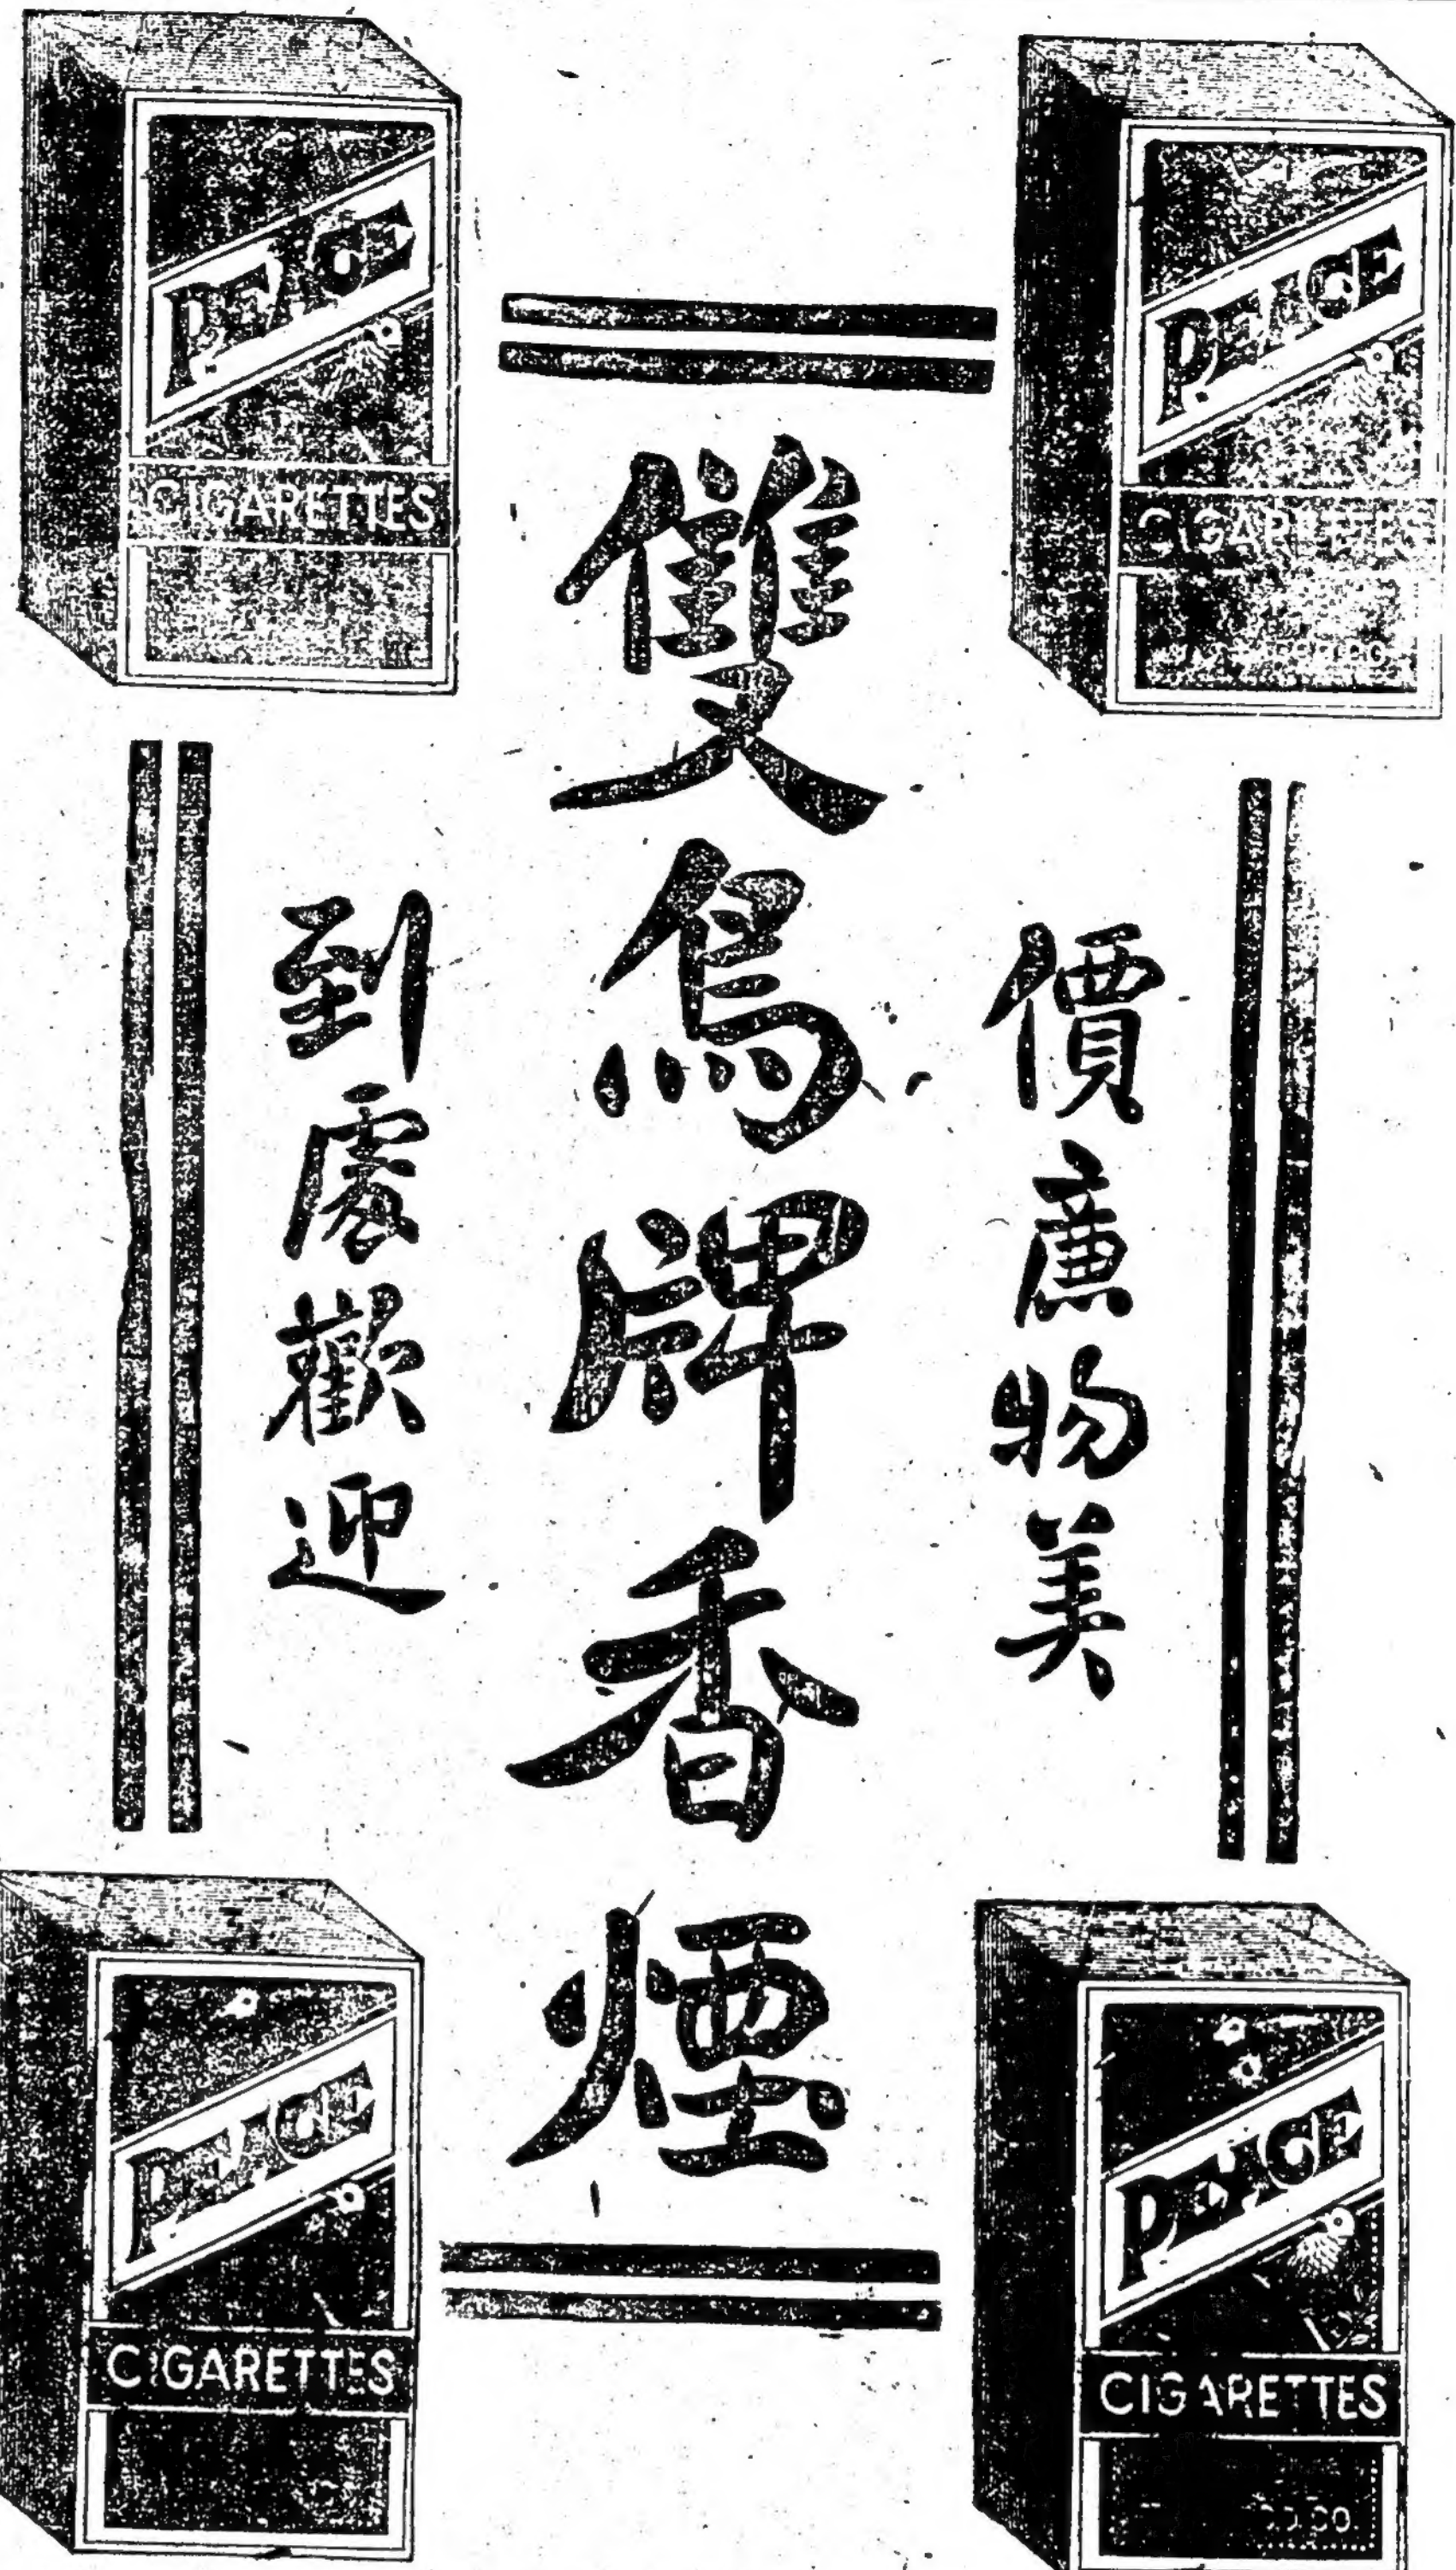 PEACE
CIGARETTES
PEACE
CIGARETTES
價廉物美
雙鳥牌香煙
到處歡迎
PEACE
CIGARETTES
PEACE
CIGARETTES
CO.